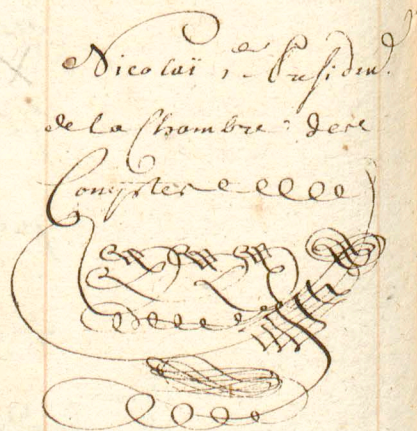 Nicolaï 1.er President
de la Chambre des
Comptes